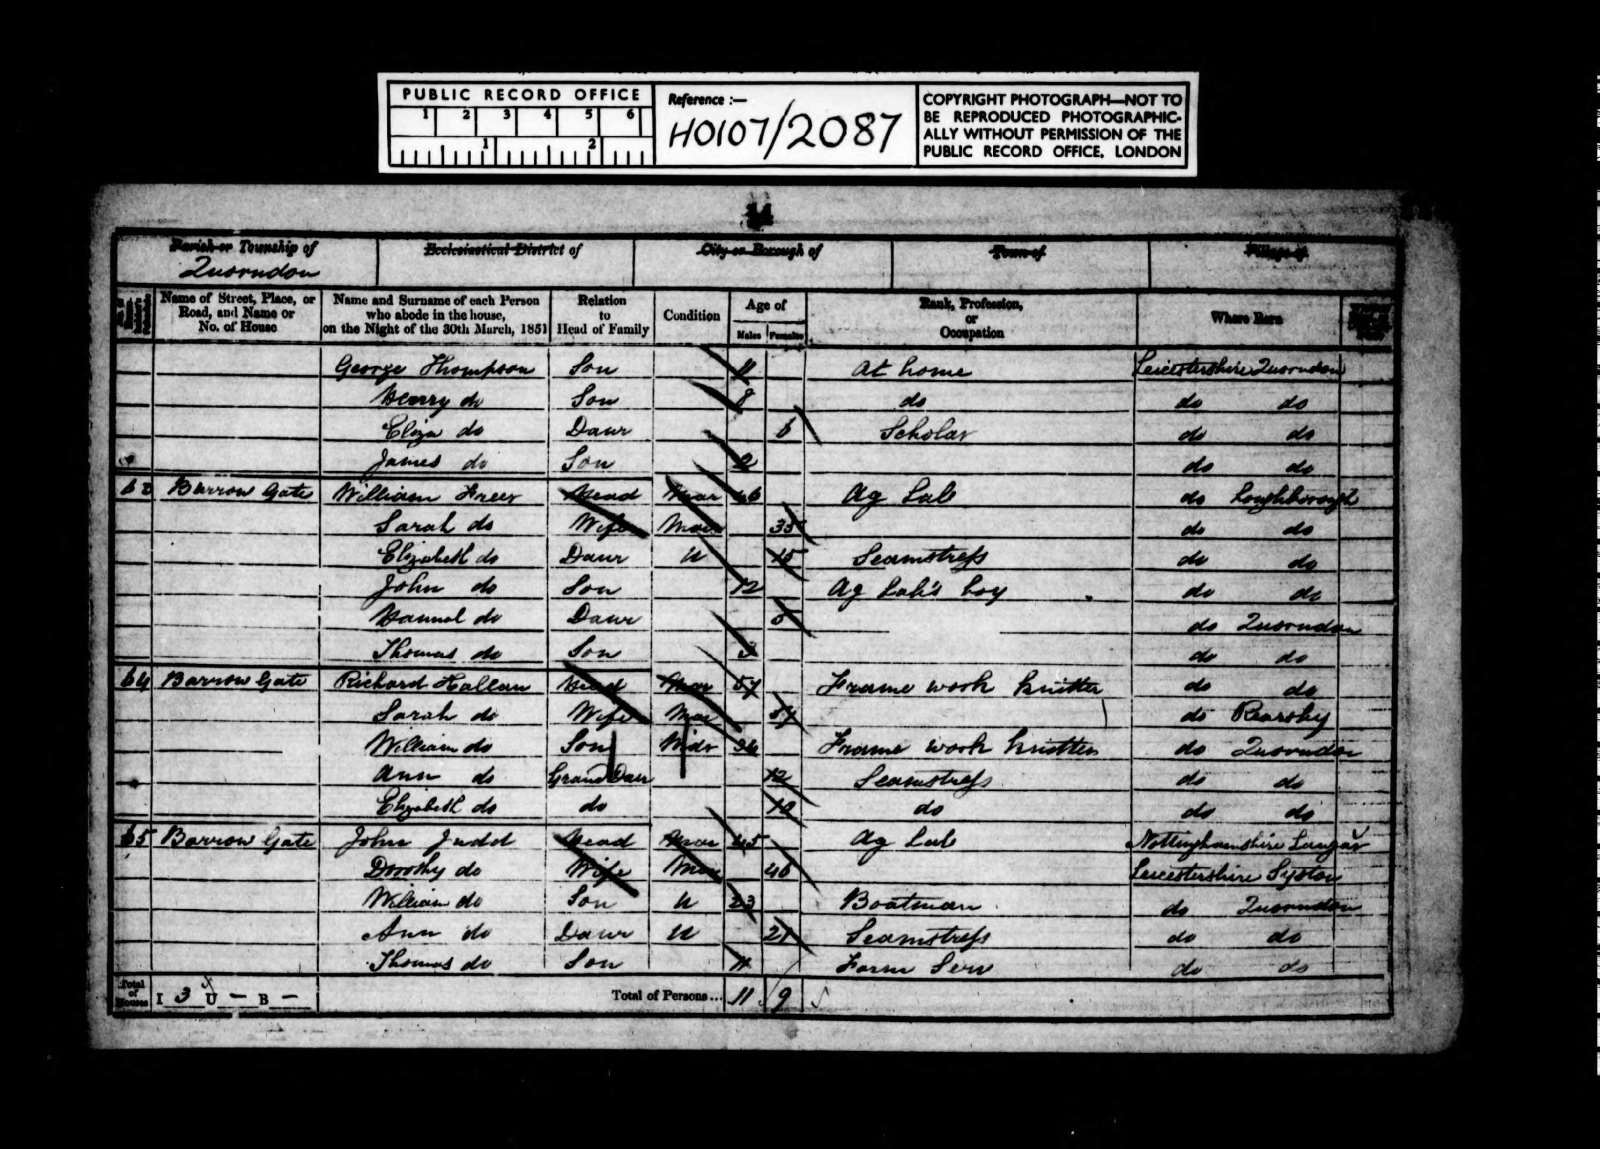 PUBLIC RECORD OFFICE
1 2 3 4 5 6
1 2
Reference :—
HO107/2087
COPYRIGHT PHOTOGRAPH—NOT TO
BE REPRODUCED PHOTOGRAPHIC-
ALLY WITHOUT PERMISSION OF THE
PUBLIC RECORD OFFICE, LONDON
14
Parish or Township of Ecclesiastical District of City or Borough of Town of Village of
Quorndon
Name of Street, Place, or Road, and Name or No. of House
Name and Surname of each Person who abode in the house, on the Night of the 30th March, 1851
Relation to Head of Family
Condition
Age of
Males Females
Rank, Profession, or Occupation
Where Born
George Thompson Son 11 At home Leicestershire Quorndon
Henry do Son 8 do do do
Eliza do Daur 6 Scholar do do
James do Son 2 do do
63 Barrow Gate William Freer Head Mar 46 Ag Lab do Loughborough
Sarah do Wife Mar 35 do do
Elizabeth do Daur U 15 Seamstress do do
John do Son 12 Ag Lab's boy do do
Hannah do Daur 5 do Quorndon
Thomas do Son 3 do do
64 Barrow Gate Richard Hallam Head Mar 57 Frame work knitter do do
Sarah do Wife Mar 57 do Rearsby
William do Son Widr 34 Frame work knitter do Quorndon
Ann do Grand Daur 12 Seamstress do do
Elizabeth do do 10 do do do
65 Barrow Gate John Judd Head Mar 45 Ag Lab Nottinghamshire Langar
Dorothy do Wife Mar 46 Leicestershire Syston
William do Son U 23 Boatman do Quorndon
Ann do Daur U 21 Seamstress do do
Thomas do Son 11 Farm Serv do do
Total of Houses I 3 U — B — Total of Persons... 11 9